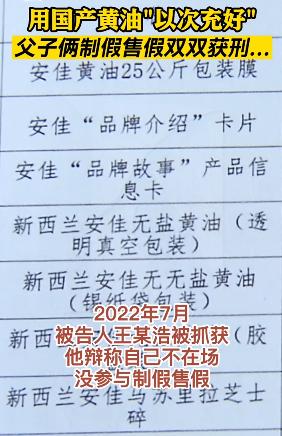 用国产黄油"以次充好"
父子俩制假售假双双获刑...
安佳黄油25公斤包装膜
安佳“品牌介绍”卡片
安佳“品牌故事”产品信
息卡
新西兰安佳无盐黄油（透
明真空包装）
新西兰安佳无无盐黄油
（锡纸袋包装）
2022年7月
新西
（胶
被告人王某浩被抓获
他辩称自己不在场
没参与制假售假
新西兰安佳马苏里拉芝士
碎